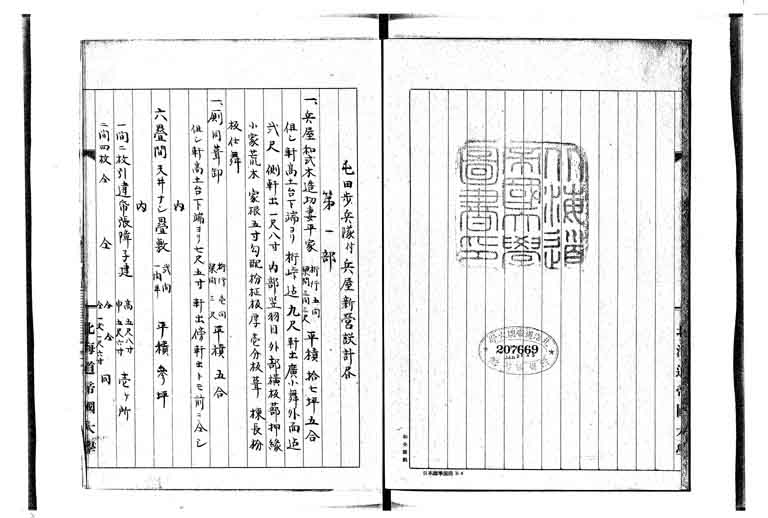 北海道帝國大學圖書印
207669
北海道帝國大學
屯田歩兵隊付兵屋新營設計書
第一部
一、兵屋和式木造切妻平家 桁行五間 梁間三間三尺 平積拾七坪五合
但シ軒高土台下端ヨリ桁峠迠九尺軒出廣小舞外面迠
弐尺側軒出一尺八寸内部竪羽目外部横板蔀押縁
小家荒木家根五寸勾配柾板厚壱分板葺棟長
板仕舞
一、厠同葺卸 桁行壱間 梁間三尺 平積五合
但シ軒高土台下端ヨリ七尺五寸軒出傍軒出トモ前ニ仝シ
内
六畳間天井ナシ畳敷 弐間 一間半 平積参坪
内
一間二枚引違合張障子建 高五尺八寸 巾五尺六寸 壱ヶ所
二間四枚仝 仝 同
北海道帝國大學